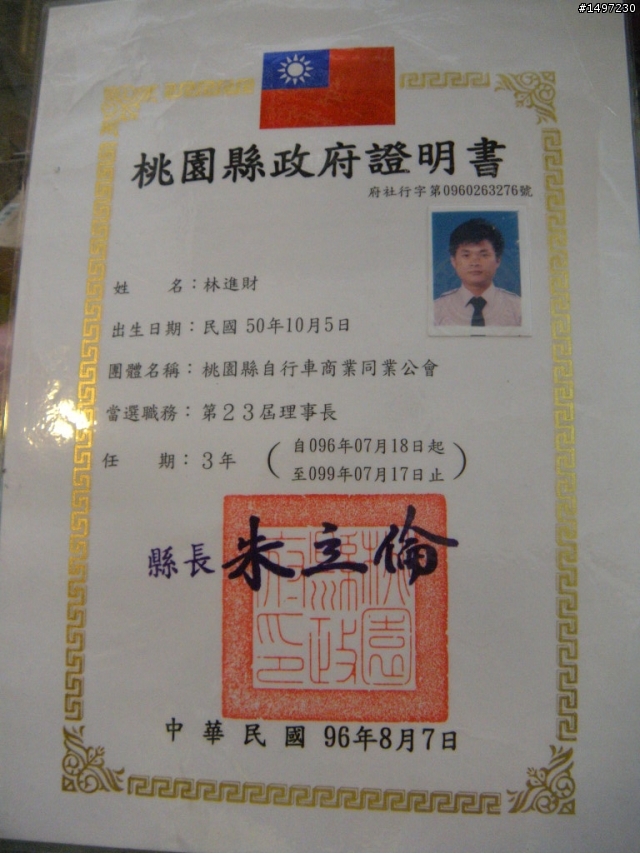 #1497230
桃園縣政府證明書
府社行字第0960263276號
姓　名：林進財
出生日期：民國 50年10月5日
團體名稱：桃園縣自行車商業同業公會
當選職務：第23屆理事長
任　期：3年（自096年07月18日起
至099年07月17日止）
縣長 朱立倫
桃園縣政府印
中華民國 96年8月7日